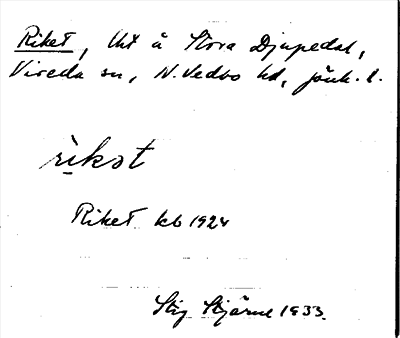 Riket, lht å Stora Djupedal,
Vireda sn, N. Vedbo hd, jönk. l.
rikət
Riket kb 1924
Stig Stjärne 1933.